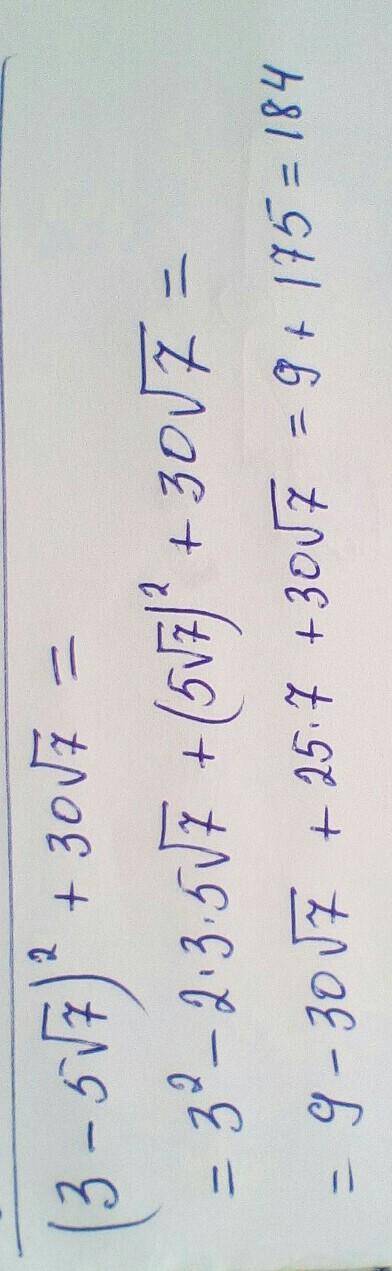 (3 - 5√7)² + 30√7 =
= 3² - 2·3·5√7 + (5√7)² + 30√7 =
= 9 - 30√7 + 25·7 + 30√7 = 9 + 175 = 184